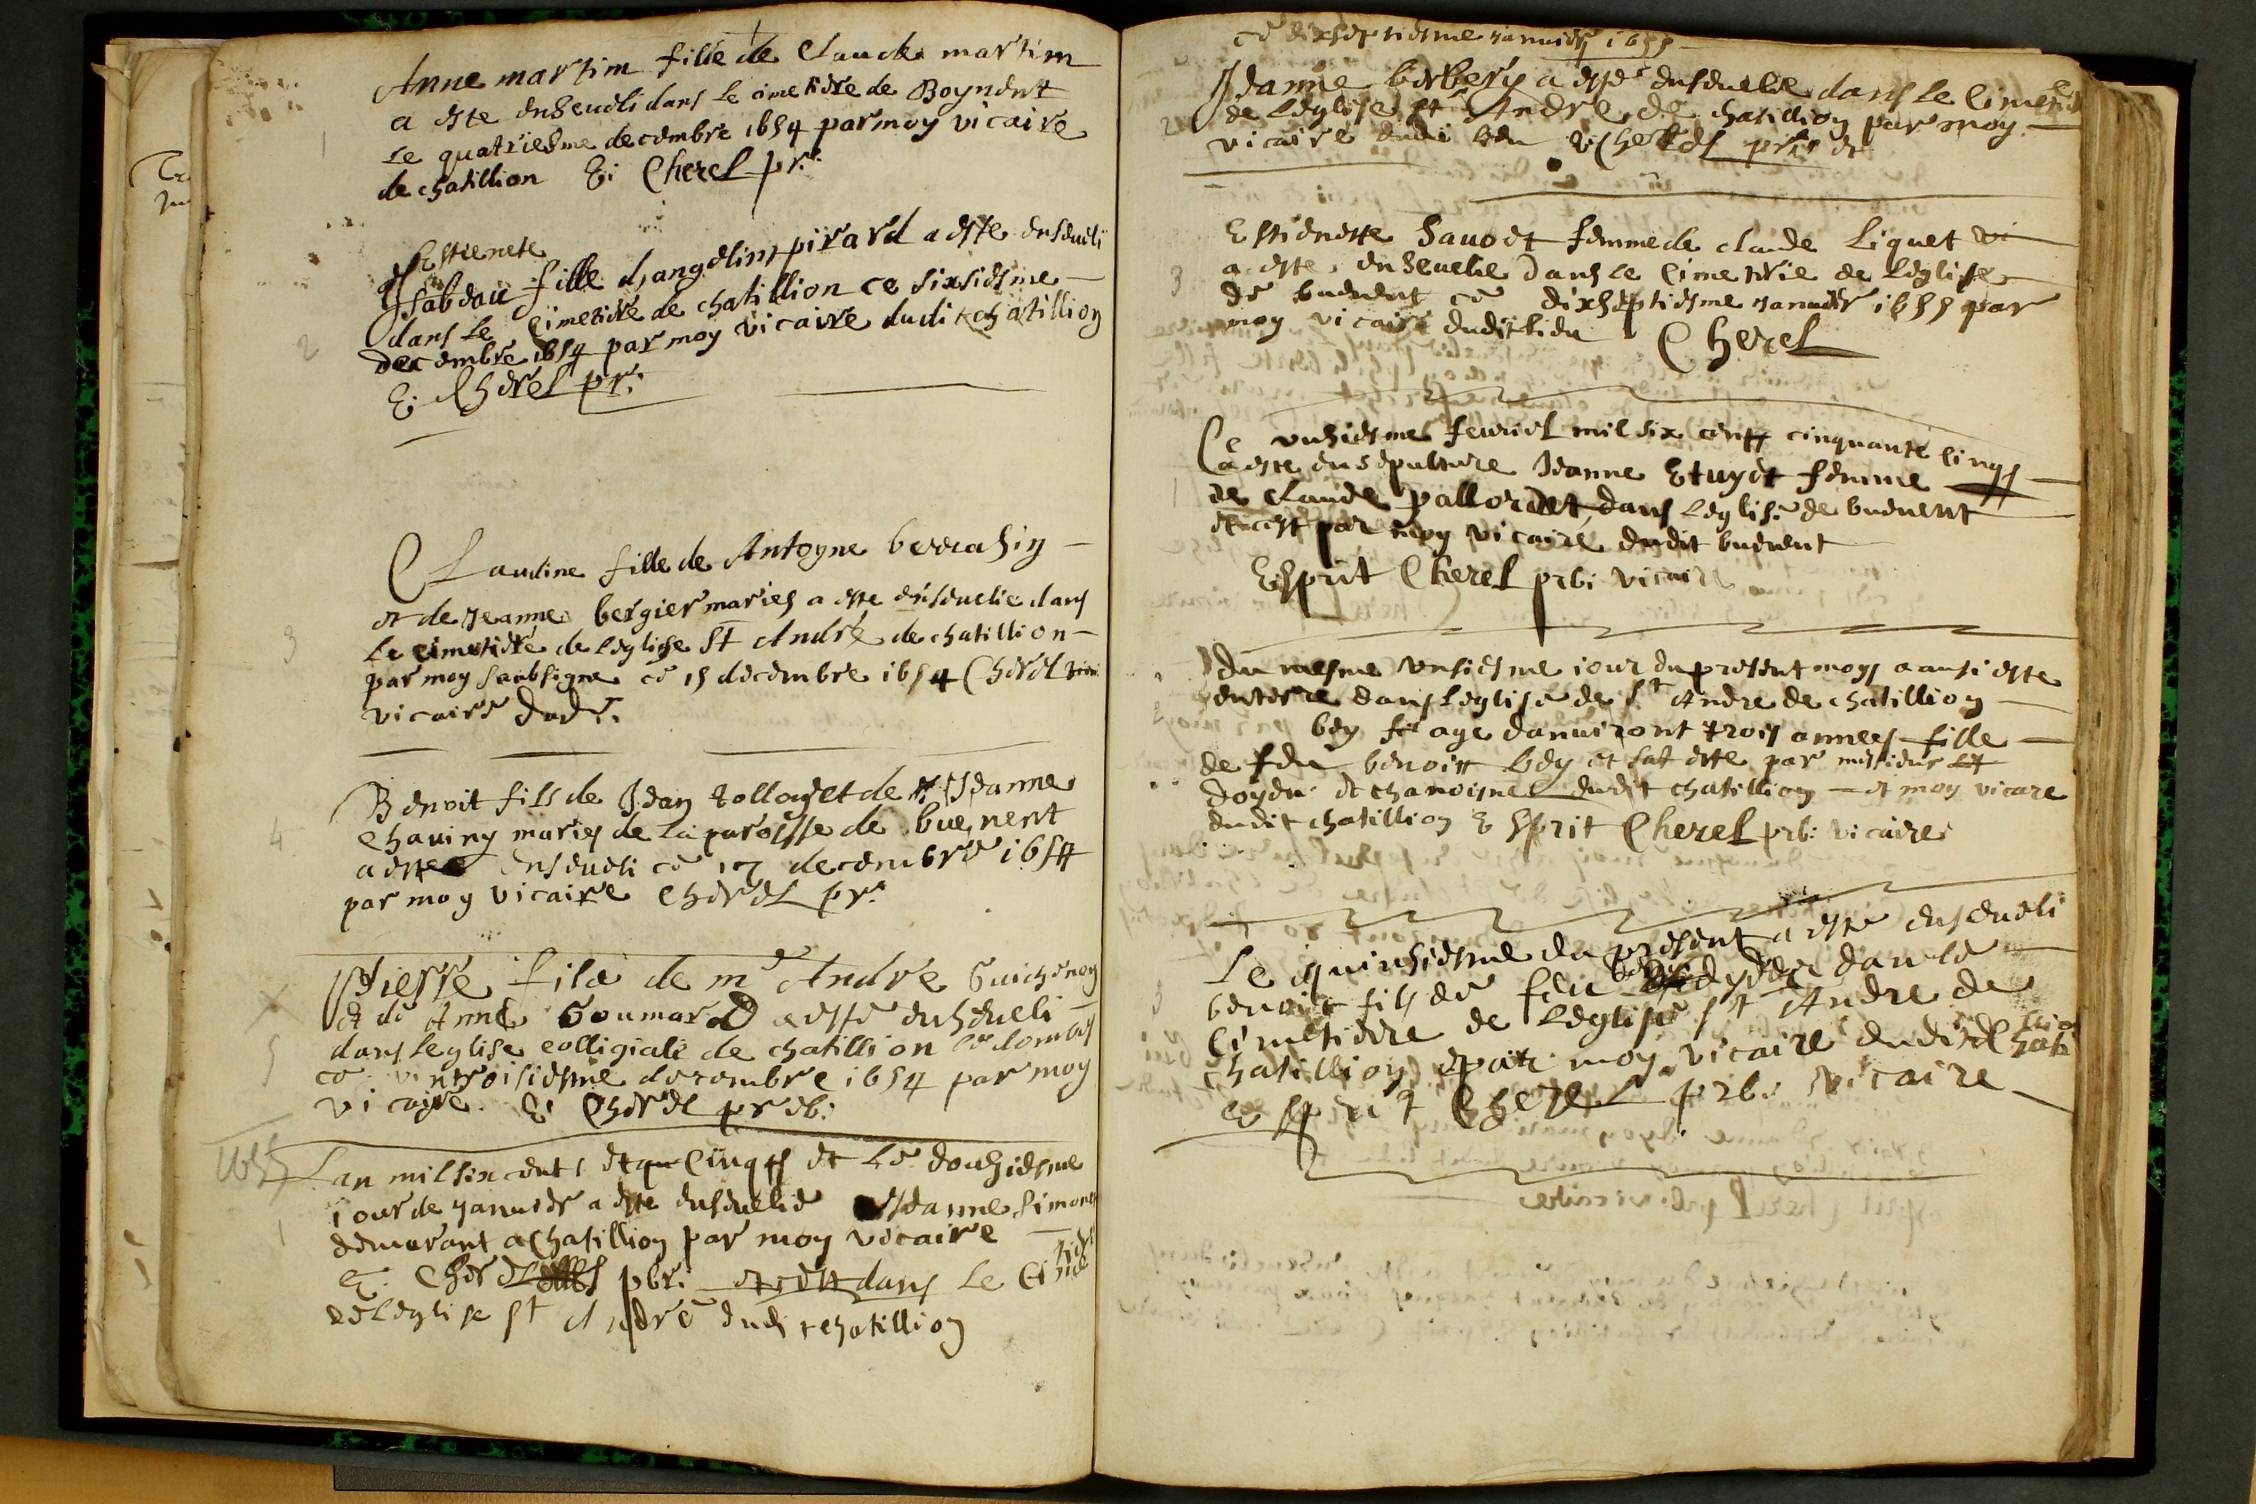 Anne martim fille de Claude martim
a este enseveli dans le cimetiere de Boynent
le quatriesme decembre 1654 par moy vicaire
de chatillion E: Cherel pr:
Estienete
fille pirard a este enseveli
dans le Cimetiere de chatillion ce sixsiesme
decembre 1654 par moy vicaire dudit chatillion
E. Cherel pr:
Claudine fille de Antoyne
et de Jeanne bergier maries a este ensevelie dans
le cimetiere de leglise St André de chatillion
par moy soubsigne ce 15 decembre 1654 Cherel
vicaire dud.
Benoit fils de Jean et de Jeanne
Chaviny maries de la paroisse de buenent
a este enseveli ce 17 decembre 1654
par moy vicaire Cherel pr:
Pierre fils de m andre Guichenon
et de Anne Goumard a este enseveli
dans leglise colligiale de chatillion
ce vintroisiesme decembre 1654 par moy
vicaire. E: Cherel preb:
1655
Lan mil six cents cinqts et le douziesme
iour de janvier a este ensevelie Jeanne Simone
demurant a chatillion par moy vicaire
E. Cherel pbr: dans le Cimetiere
de leglise St Andre dudit chatillion
ce dixseptiesme janvier 1655
Jeanne berbery a este ensevelie dans le Cimetiere
de leglise St Andre de chatillion par moy
vicaire dudi lieu Cherel
Estienette Sauoet femme de claude Liquet
a este ensevelie dans le Cimetire de leglise
de buenent ce dixseptiesme januier 1655 par
moy vicaire dudit lieu Cherel
Ce unziesme feurier mil six cents cinquante cinqs
a este ensepulture Jeanne Etuyet femme
de Claude pallordet, dans leglise de buenent
par moy vicaire dudit buenent
Esprit Cherel prb: vicaire
du mesme unsiesme iour du present moys a ausi este
enterre dans leglise de St Andre de chatillion
bey age danuiront trois annees fille
de feu benoist bey et fat este par
doyen et chanoisnes dudit chatillion et moy vicare
dudit chatillion Esprit Cherel prb: vicaire
Le quinsiesme du present a este enseueli
benoist fils de feu dans le
Cimetiere de leglise St Andre de
chatillion par moy vicaire dudit Chatillion
Esprit Cherel prb: vicaire